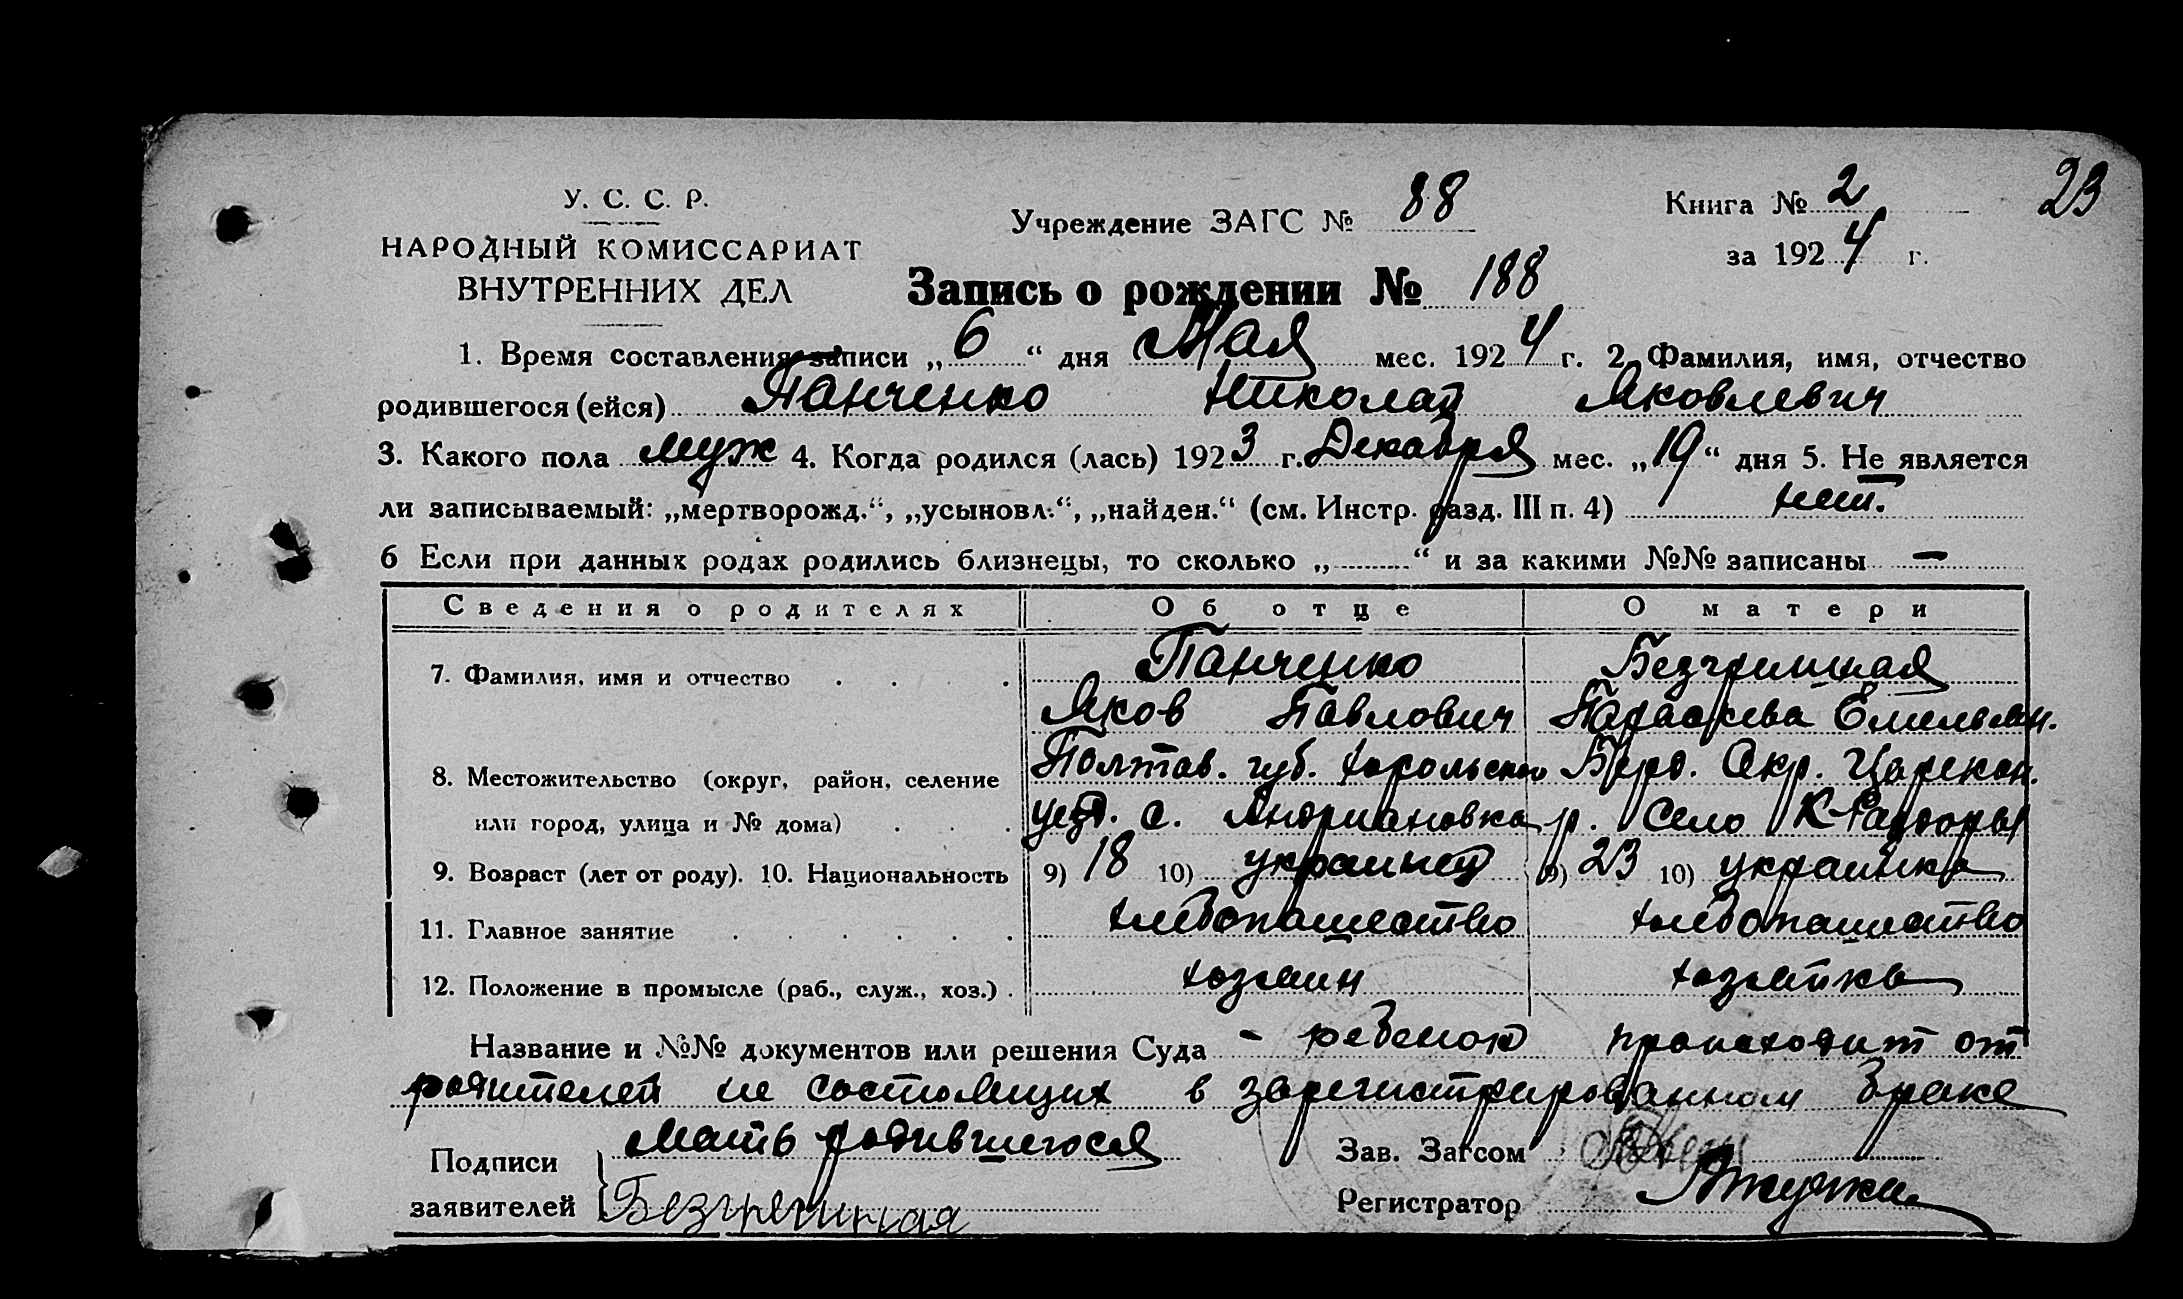 23
У. С. С. Р.
Учреждение ЗАГС № 88
Книга № 2
НАРОДНЫЙ КОМИССАРИАТ
за 1924 г.
ВНУТРЕННИХ ДЕЛ
Запись о рождении № 188
1. Время составления записи „6“ дня Мая мес. 1924 г. 2. Фамилия, имя, отчество
родившегося (ейся) Панченко Николай Яковлевич
3. Какого пола муж 4. Когда родился (лась) 1923 г. Декабря мес. „19“ дня 5. Не является
ли записываемый: „мертворожд.“, „усыновл.“, „найден.“ (см. Инстр. разд. III п. 4) нет.
6 Если при данных родах родились близнецы, то сколько „..........“ и за какими №№ записаны —
Сведения о родителях Об отце О матери
7. Фамилия, имя и отчество Панченко Безгрешная
Яков Павлович Параскева Емельян.
8. Местожительство (округ, район, селение Полтав. губ. Хорольского Берд. Окр. Царекон.
или город, улица и № дома) уезд. с. Андриановка р. Село К-Раздоры
9. Возраст (лет от роду). 10. Национальность 9) 18 10) украинец 9) 23 10) украинка
11. Главное занятие хлебопашество хлебопашество
12. Положение в промысле (раб., служ., хоз.) хозяин хозяйка
Название и №№ документов или решения Суда - ребенок происходит от
родителей не состоящих в зарегистрированном браке
Подписи заявителей Мать родившегося
Безгрешная
Зав. Загсом
Регистратор